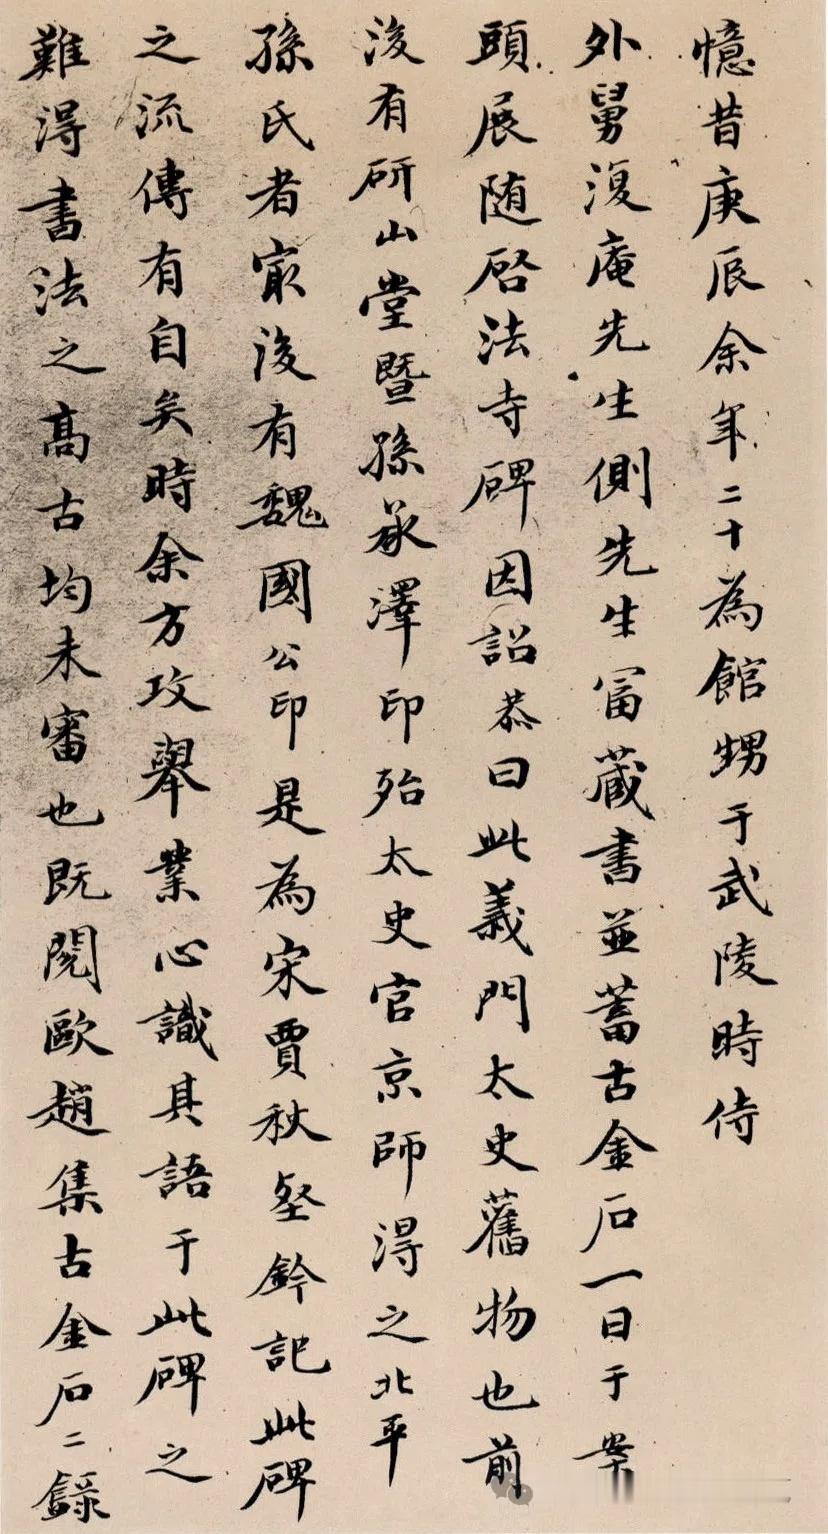 憶昔庚辰余年二十為館甥于武陵時侍
外舅復庵先生側先生富藏書並蓄古金石一日于案
頭展随啓法寺碑因詔恭曰此義門太史舊物也前
後有研山堂暨孫承澤印殆太史官京師得之北平
孫氏者寂後有魏國公印是為宋賈秋壑鈐記此碑
之流傳有自矣時余方攻舉業心識其語于此碑之
難得書法之高古均未審也既閱歐趙集古金石二錄